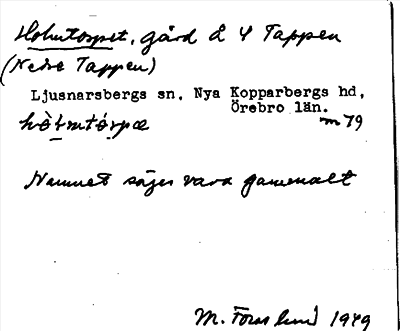 Holmtorpet, gård å 4 Tappen
(Nedre Tappen)
Ljusnarsbergs sn, Nya Kopparbergs hd,
Örebro län.
hòlmtórpæ m79
Namnet säges vara gammalt
M. Forslund 1949